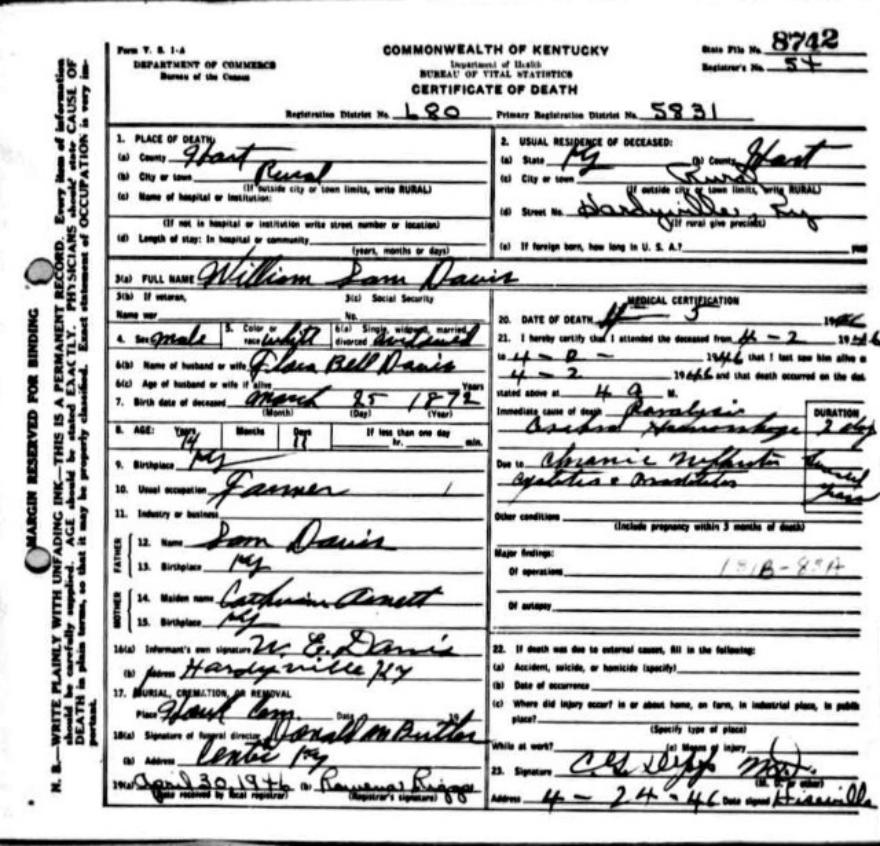 Form V. S. 1-A
DEPARTMENT OF COMMERCE
Bureau of the Census
COMMONWEALTH OF KENTUCKY
Department of Health
BUREAU OF VITAL STATISTICS
CERTIFICATE OF DEATH
State File No. 8742
Registrar's No. 54
Registration District No. 680 Primary Registration District No. 5831
MARGIN RESERVED FOR BINDING
N. B.—WRITE PLAINLY WITH UNFADING INK—THIS IS A PERMANENT RECORD. Every item of information
should be carefully supplied. AGE should be stated EXACTLY. PHYSICIANS should state CAUSE OF
DEATH in plain terms, so that it may be properly classified. Exact statement of OCCUPATION is very im-
portant.
1. PLACE OF DEATH:
(a) County Hart
(b) City or town Rural
(If outside city or town limits, write RURAL)
(c) Name of hospital or institution:
(If not in hospital or institution write street number or location)
(d) Length of stay: In hospital or community
(years, months or days)
2. USUAL RESIDENCE OF DECEASED:
(a) State Ky (b) County Hart
(c) City or town Rural
(If outside city or town limits, write RURAL)
(d) Street No. Hardyville, Ky
(If rural give precinct)
(e) If foreign born, how long in U. S. A.? years
3(a) FULL NAME William Sam Davis
3(b) If veteran, 3(c) Social Security
Name war No.
4. Sex male 5. Color or race white 6(a) Single, widowed, married, divorced widowed
6(b) Name of husband or wife Flora Bell Davis
6(c) Age of husband or wife if alive Years
7. Birth date of deceased March 25 1872
(Month) (Day) (Year)
8. AGE: Years 74 Months Days 11 If less than one day
hr. min.
9. Birthplace Ky
10. Usual occupation Farmer
11. Industry or business
FATHER
12. Name Sam Davis
13. Birthplace Ky
MOTHER
14. Maiden name Catherine Arnett
15. Birthplace Ky
16(a) Informant's own signature W. E. Davis
(b) Address Hardyville Ky
17. BURIAL, CREMATION, OR REMOVAL
Place Cem. Date 19
18(a) Signature of funeral director Donald M Butler
(b) Address Center Ky
19(a) April 30, 1946 (b) Rowena Riggs
(Date received by local registrar) (Registrar's signature)
MEDICAL CERTIFICATION
20. DATE OF DEATH 4 - 5 1946
21. I hereby certify that I attended the deceased from 4 - 2 1946
to 4 - 1946 that I last saw him alive o
4 - 2 1946 and that death occurred on the dat
stated above at 4 a M.
Immediate cause of death Paralysis
Hemorrhage
DURATION
Due to Chronic Nephritis
Cystitis
Other conditions
(Include pregnancy within 3 months of death)
Major findings:
Of operations 131B-83A
Of autopsy
22. If death was due to external causes, fill in the following:
(a) Accident, suicide, or homicide (specify)
(b) Date of occurrence
(c) Where did injury occur? in or about home, on farm, in industrial place, in public
place?
(Specify type of place)
While at work? (e) Means of injury
23. Signature C. G. MD.
(M. D. or other)
Address 4 - 24 - 46 Date signed Hiseville